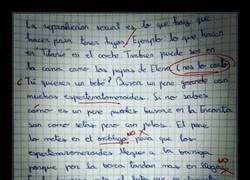 La reproducción sexual es lo que hay que
hacer para tener hijos. Ejemplo lo que hacen
en Titanic en el coche. También puede ser en
la cama como los papas de Elena (me lo contó)
¿Tú quieres un bebé? Buscas un pene grande con
muchos espermatozoides. Si no sabes
cómo es un pene puedes buscar en la Encarta
son como setas pero con pelos. El pene
lo metes en el NO para que los
lleguen a la barriga
porque por la boca tardan más en llegar NO